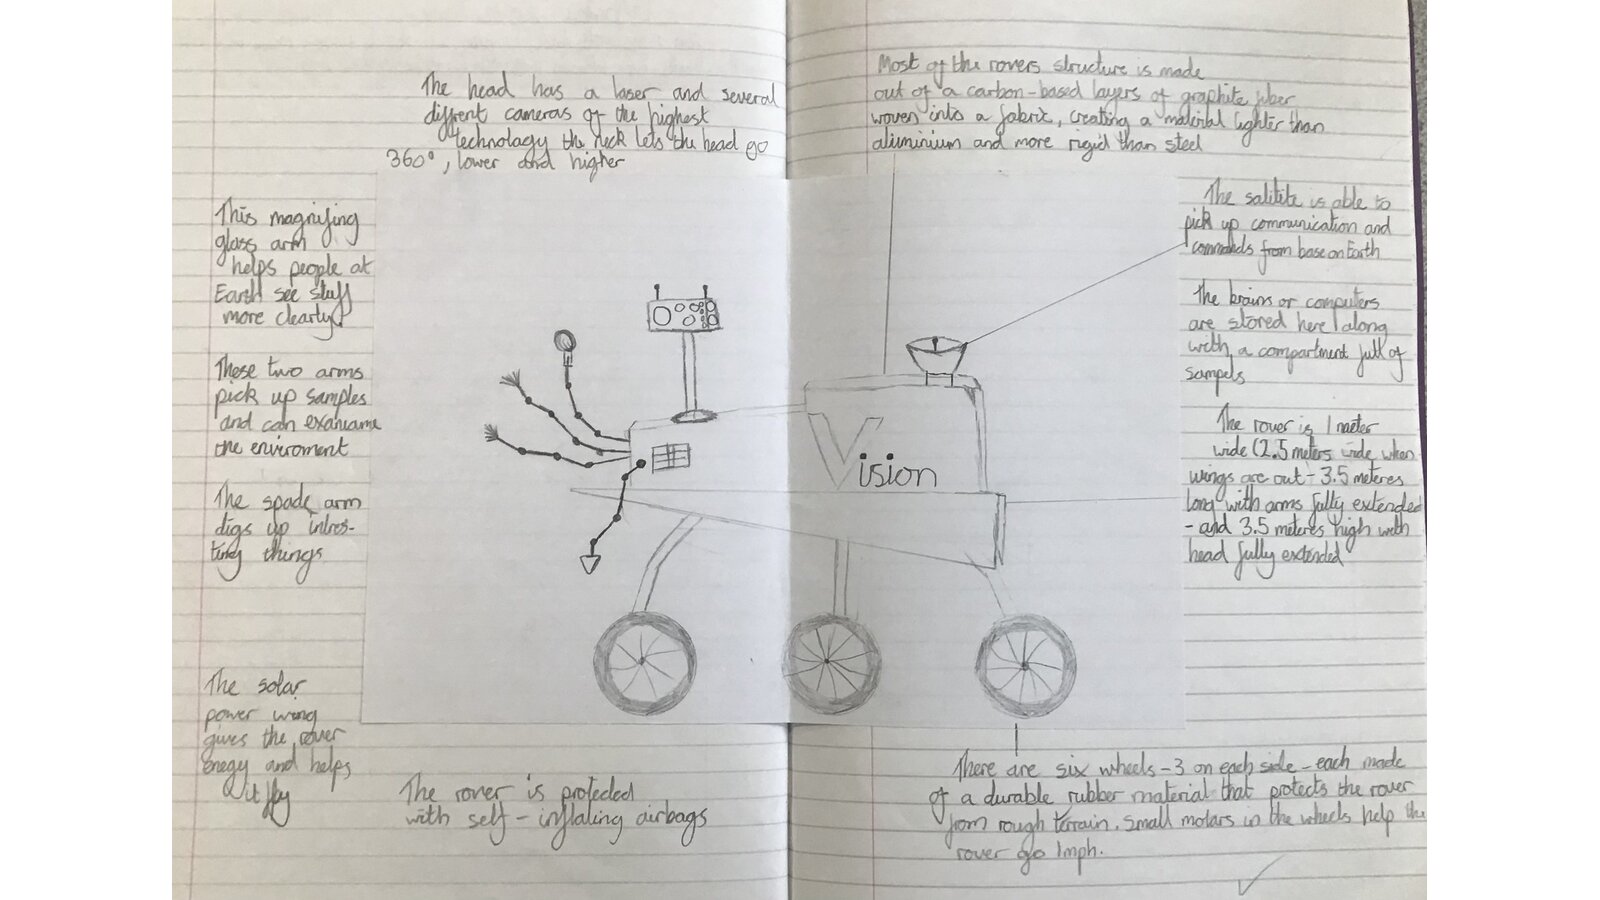 The head has a laser and several
diffrent cameras of the highest
technology the neck lets the head go
360°, lower and higher
This magnifing
glass arm
helps people at
Earth see stuff
more clearly
These two arms
pick up samples
and can exaniame
the enviroment
The spade arm
digs up intres-
ting things
The solar
power wing
gives the rover
enegy and helps
it fly
The rover is protected
with self-inflating airbags
Vision
Most of the rovers structure is made
out of a carbon-based layers of graphite fiber
woven into a fabric, creating a material lighter than
aluminium and more rigid than steel
The salitite is able to
pick up communication and
commands from base on Earth
The brains or computers
are stored here along
with a compartment full of
sampels
The rover is 1 meter
wide (2.5 meters wide when
wings are out - 3.5 meteres
long with arms fully extended
- and 3.5 meteres high with
head fully extended
There are six wheels - 3 on each side - each made
of a durable rubber material that protects the rover
from rough terrain. Small motars in the wheels help the
rover go 1mph.